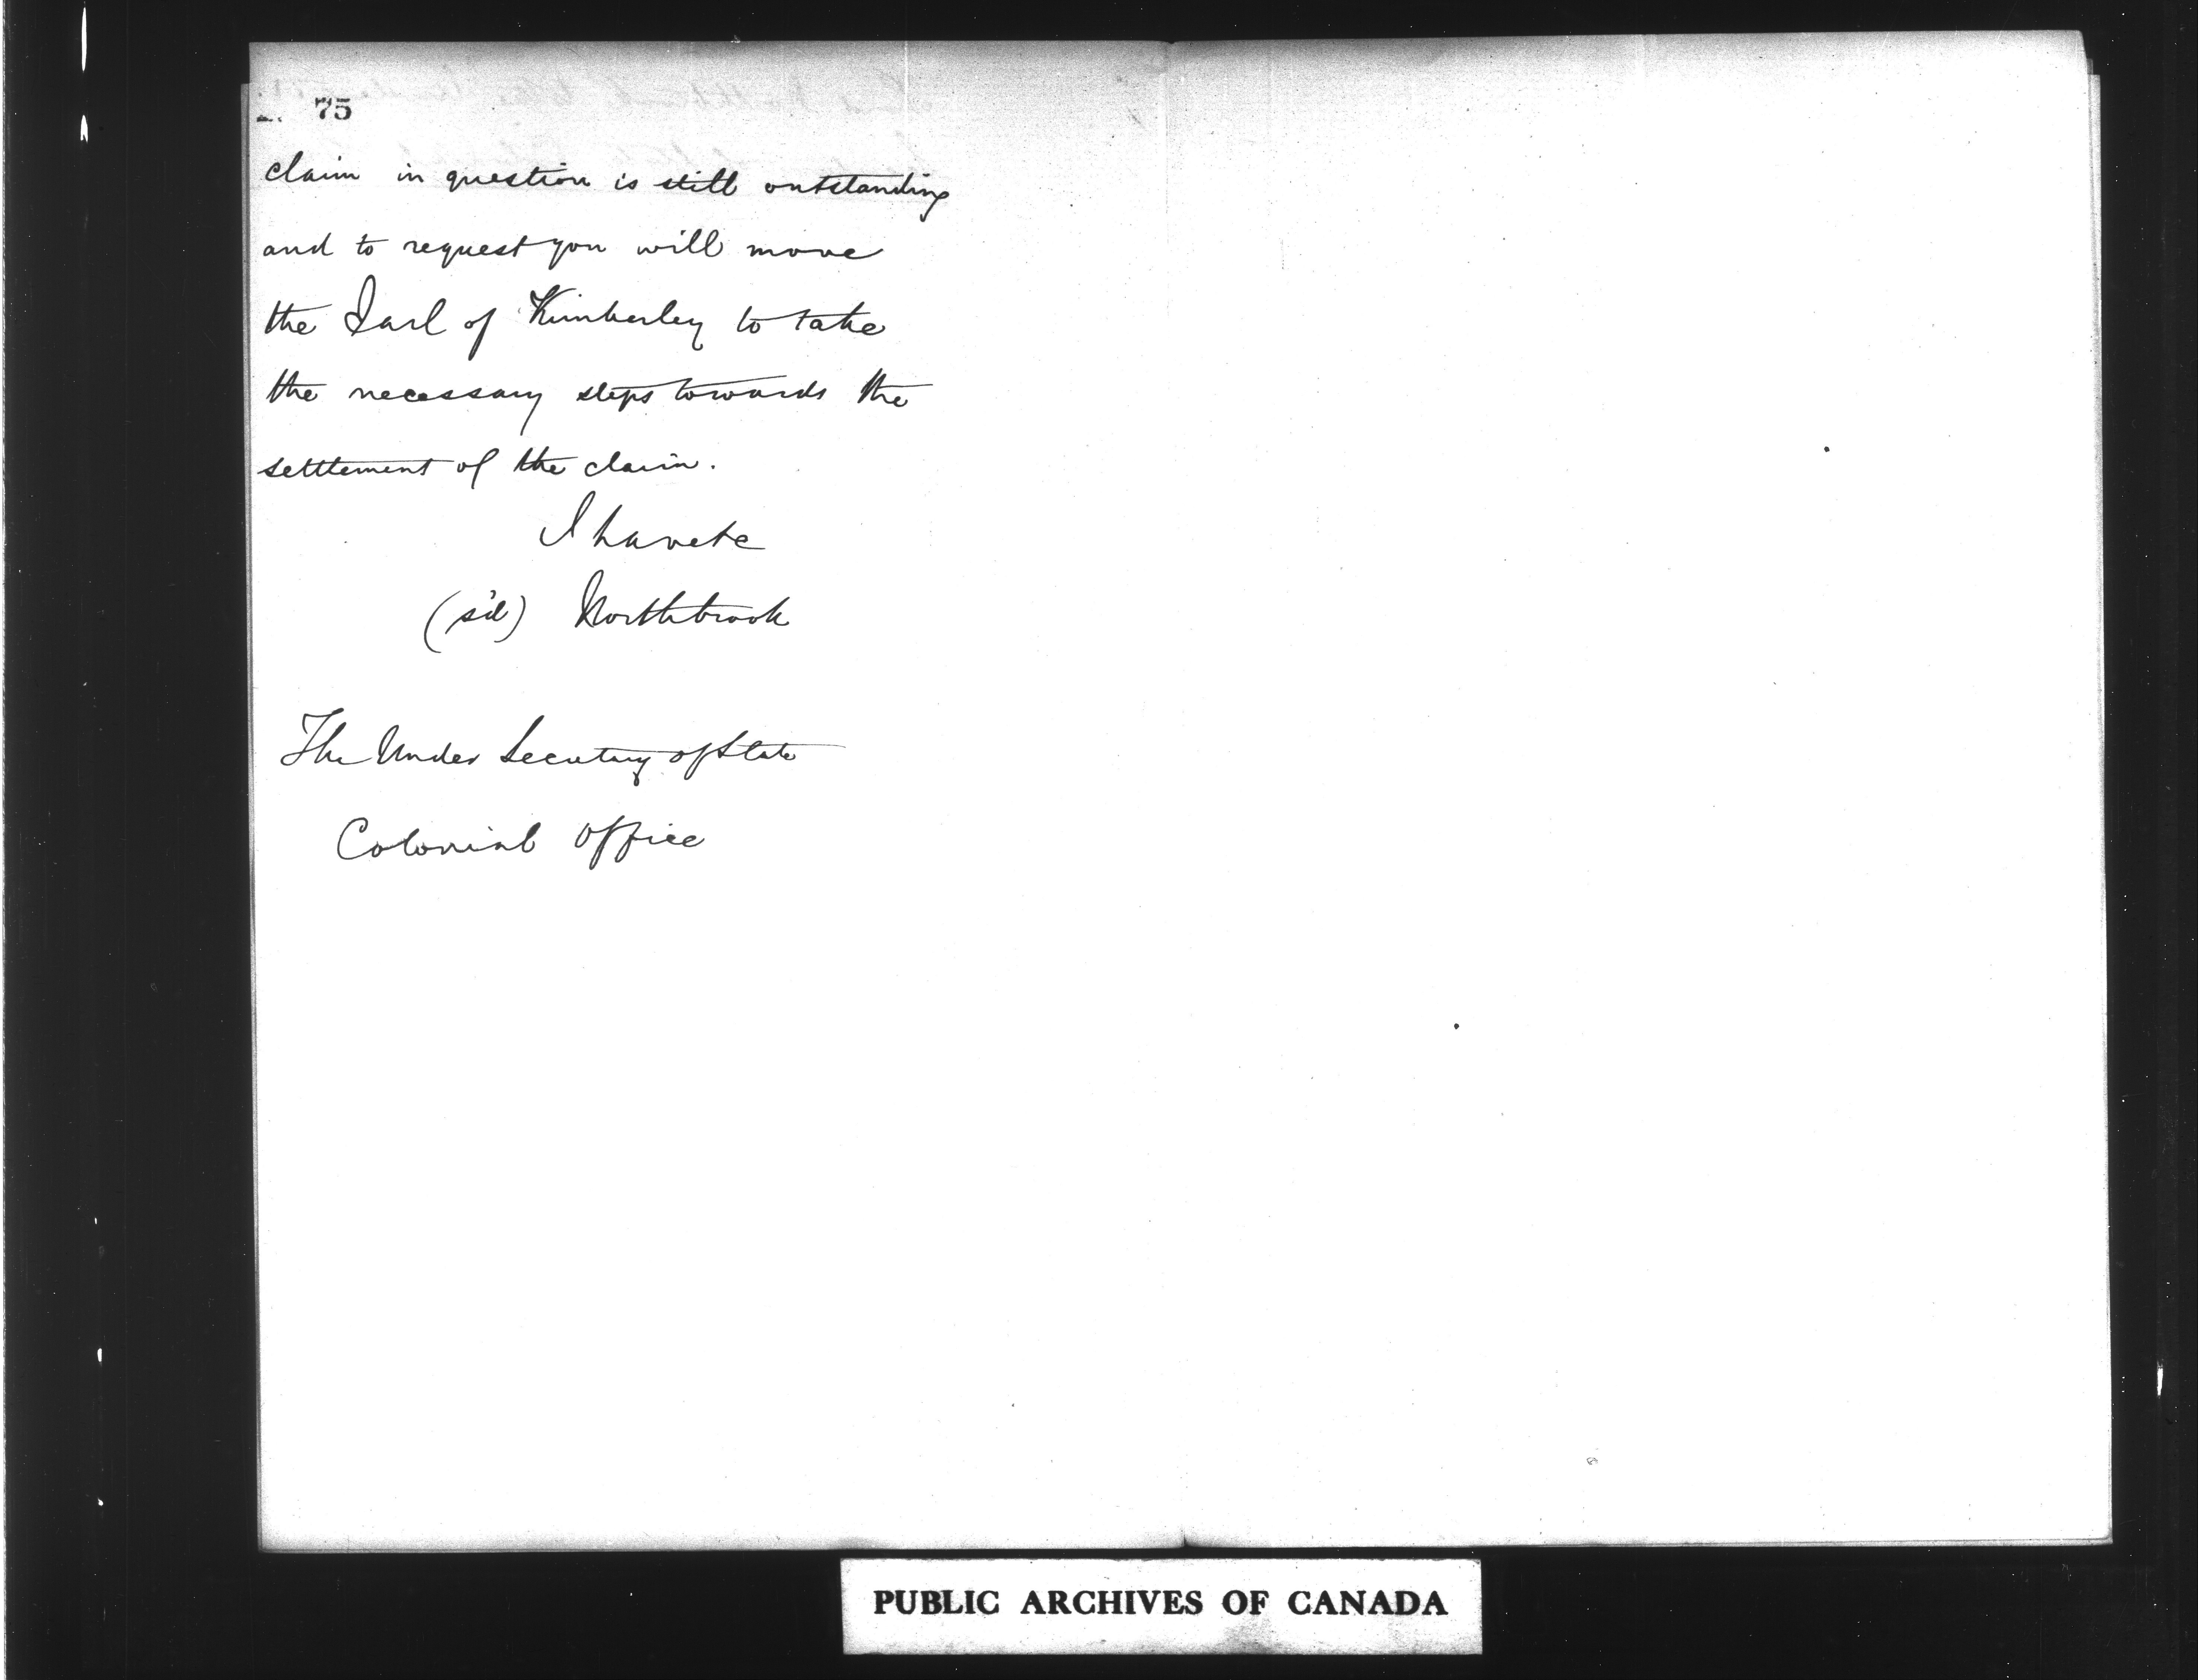 75
claim in question is still outstanding
and to request you will move
the Earl of Kimberley to take
the necessary steps towards the
settlement of the claim.
I have &c
(s'd) Northbrook
The Under Secretary of State
Colonial Office
PUBLIC ARCHIVES OF CANADA